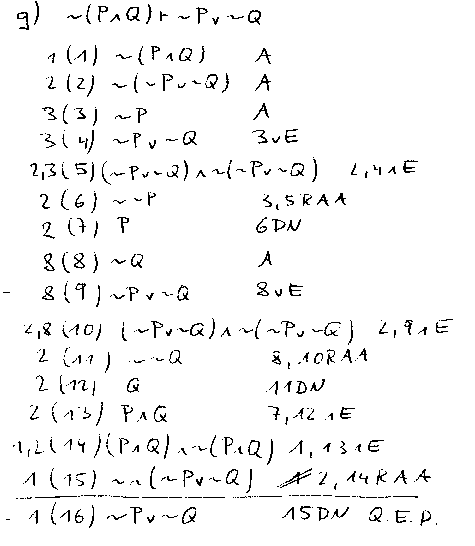 g) ~(P∧Q)⊢~P∨~Q
1 (1) ~(P∧Q) A
2 (2) ~(~P∨~Q) A
3 (3) ~P A
3 (4) ~P∨~Q 3∨E
2,3 (5) (~P∨~Q)∧~(~P∨~Q) 2,4∧E
2 (6) ~~P 3,5RAA
2 (7) P 6DN
8 (8) ~Q A
- 8 (9) ~P∨~Q 8∨E
2,8 (10) (~P∨~Q)∧~(~P∨~Q) 2,9∧E
2 (11) ~~Q 8,10RAA
2 (12) Q 11DN
2 (13) P∧Q 7,12∧E
1,2 (14) (P∧Q)∧~(P∧Q) 1,13∧E
1 (15) ~~(~P∨~Q) 2,14RAA
- 1 (16) ~P∨~Q 15DN Q.E.D.